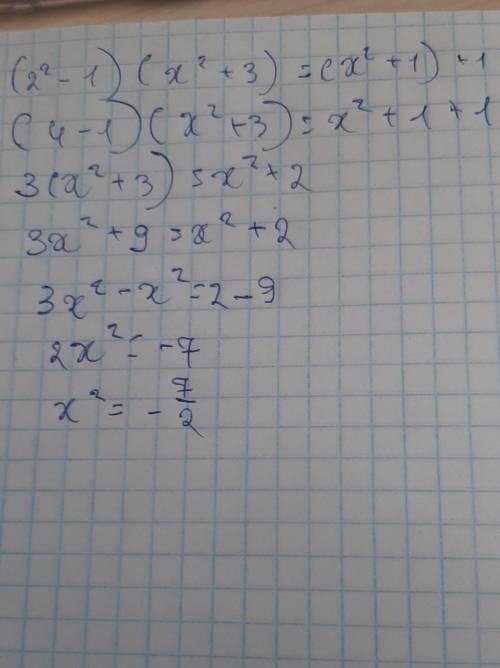 (2² - 1) (x² + 3) = (x² + 1) + 1
(4 - 1) (x² + 3) = x² + 1 + 1
3(x² + 3) = x² + 2
3x² + 9 = x² + 2
3x² - x² = 2 - 9
2x² = -7
x² = - 7/2